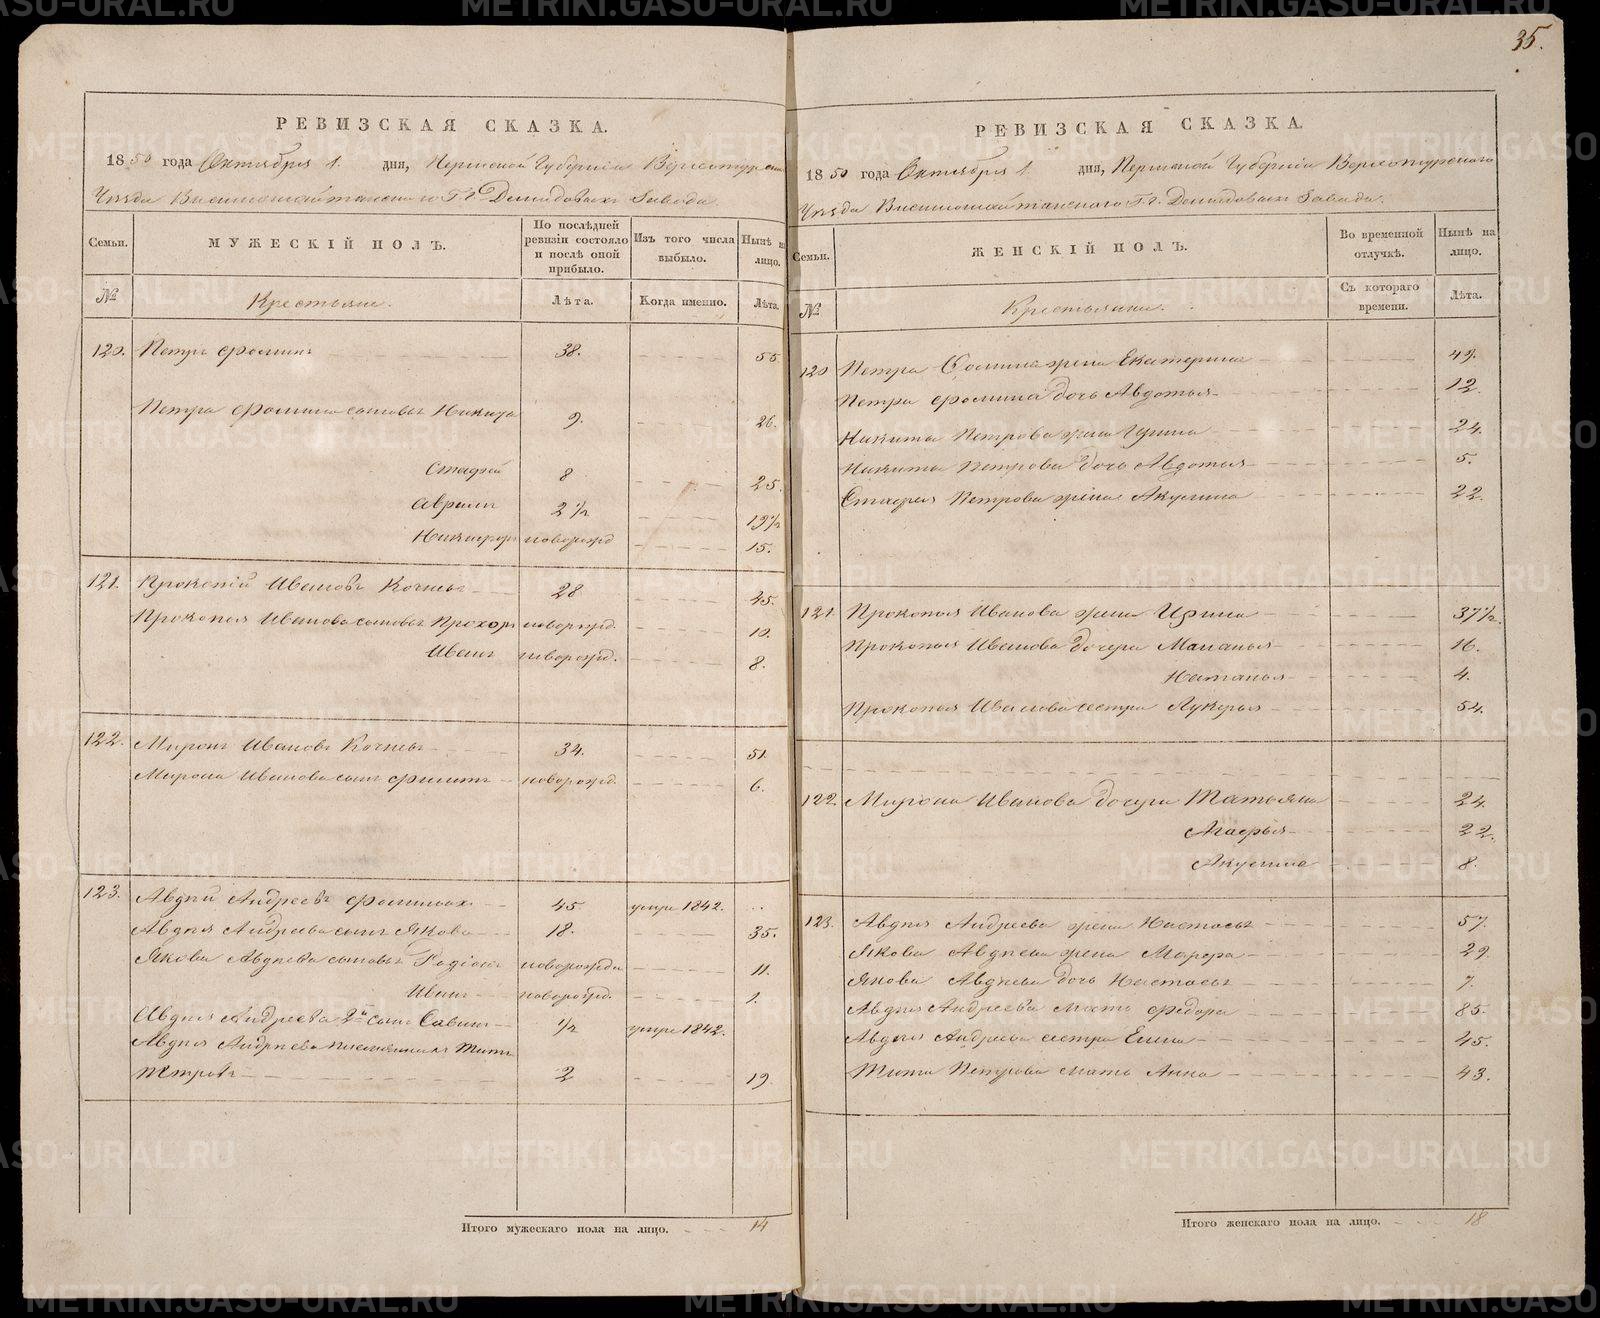 35.
РЕВИЗСКАЯ СКАЗКА.
1850 года Октября 1. дня, Пермской Губерніи Верхотурскаго
Уѣзда Висимошайтанскаго Гг. Демидовыхъ Завода.
Семьи.
МУЖЕСКІЙ ПОЛЪ.
По послѣдней ревизіи состояло и послѣ оной прибыло.
Изъ того числа выбыло.
Нынѣ на лицо.
№
Крестьяне.
Лѣта.
Когда именно.
Лѣта.
120. Петръ Фоминъ 38. 55
Петра Фомина сыновья Никита 9. 26.
Стафей 8 25.
Авраамъ 2 1/2 19 1/2
Никифоръ новорожд 15.
121. Прокопій Ивановъ Кочневъ 28 45.
Прокопья Иванова сыновья Прохоръ новорожд. 10.
Иванъ новорожд. 8.
122. Миронъ Ивановъ Кочневъ 34. 51.
Мирона Иванова сынъ Филипъ новорожд. 6.
123. Авдѣй Андреевъ 45. умре 1842.
Авдѣя Андреева сынъ Яковъ 18. 35.
Якова Авдѣева сыновья Родіонъ новорожден 11.
Иванъ новорожд. 1.
Авдѣя Андреева 2й сынъ Савинъ 1/2 умре 1842.
Авдѣя Андреева племянникъ Титъ
Петровъ 2 19.
Итого мужескаго пола на лицо. 14
РЕВИЗСКАЯ СКАЗКА.
1850 года Октября 1. дня, Пермской Губерніи Верхотурскаго
Уѣзда Висимошайтанскаго Гг. Демидовыхъ Завода.
Семьи.
ЖЕНСКІЙ ПОЛЪ.
Во временной отлучкѣ.
Нынѣ на лицо.
№
Крестьянки.
Съ котораго времени.
Лѣта.
120 Петра Фомина жена Екатерина 49.
Петра Фомина дочь Авдотья 12.
Никиты Петрова жена Ирина 24.
Никиты Петрова дочь Авдотья 5.
Стафея Петрова жена Акулина 22.
121. Прокопья Иванова жена Ирина 37 1/2.
Прокопья Иванова дочери Маланья 16.
Наталья 4.
Прокопья Иванова сестра Лукерья 54.
122. Мирона Иванова дочери Татьяна 24.
Агафья 22.
Акулина 8.
123. Авдѣя Андреева жена Настасья 57.
Якова Авдѣева жена Марфа 29.
Якова Авдѣева дочь Настасья 7.
Авдѣя Андреева мать Федора 85.
Авдѣя Андреева сестра Елена 45.
Тита Петрова мать Анна 43.
Итого женскаго пола на лицо. 18
METRIKI.GASO-URAL.RU